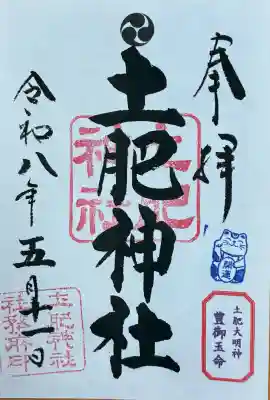 奉拝
土肥神社
令和八年五月十一日
土肥神社
開運
土肥大明神
豊御玉命
土肥神社
社務所印